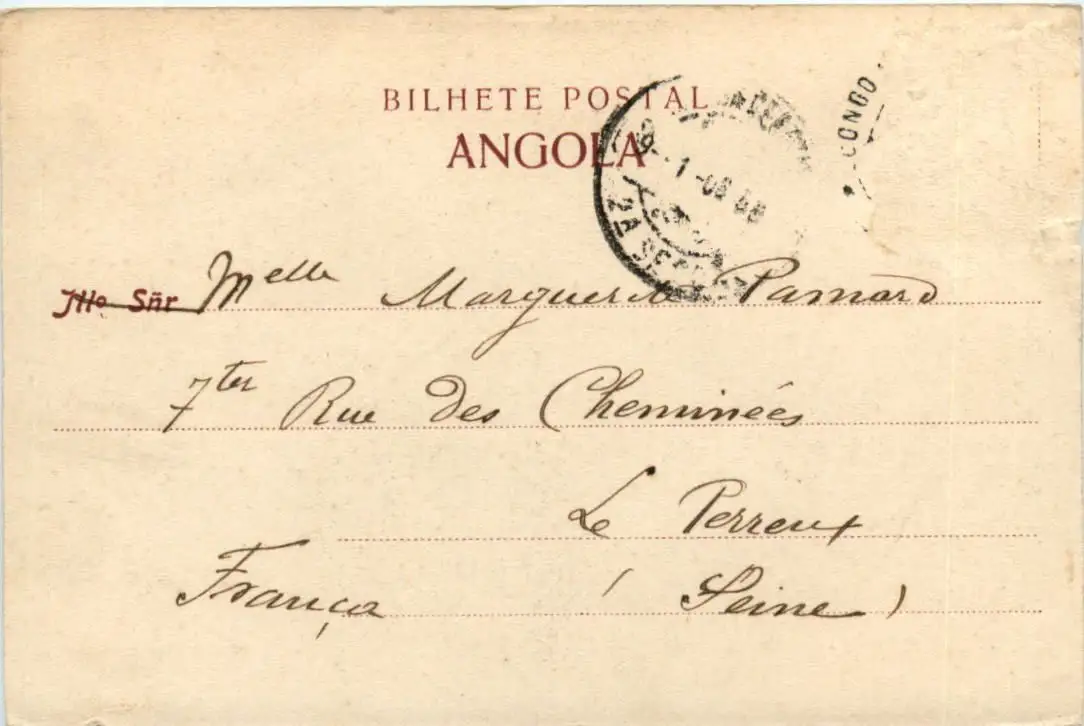 BILHETE POSTAL
ANGOLA
CONGO
2A SE
Illo Sñr Melle Marguerite Pamard
7ter Rue des Cheminées
Le Perreux
França (Seine)